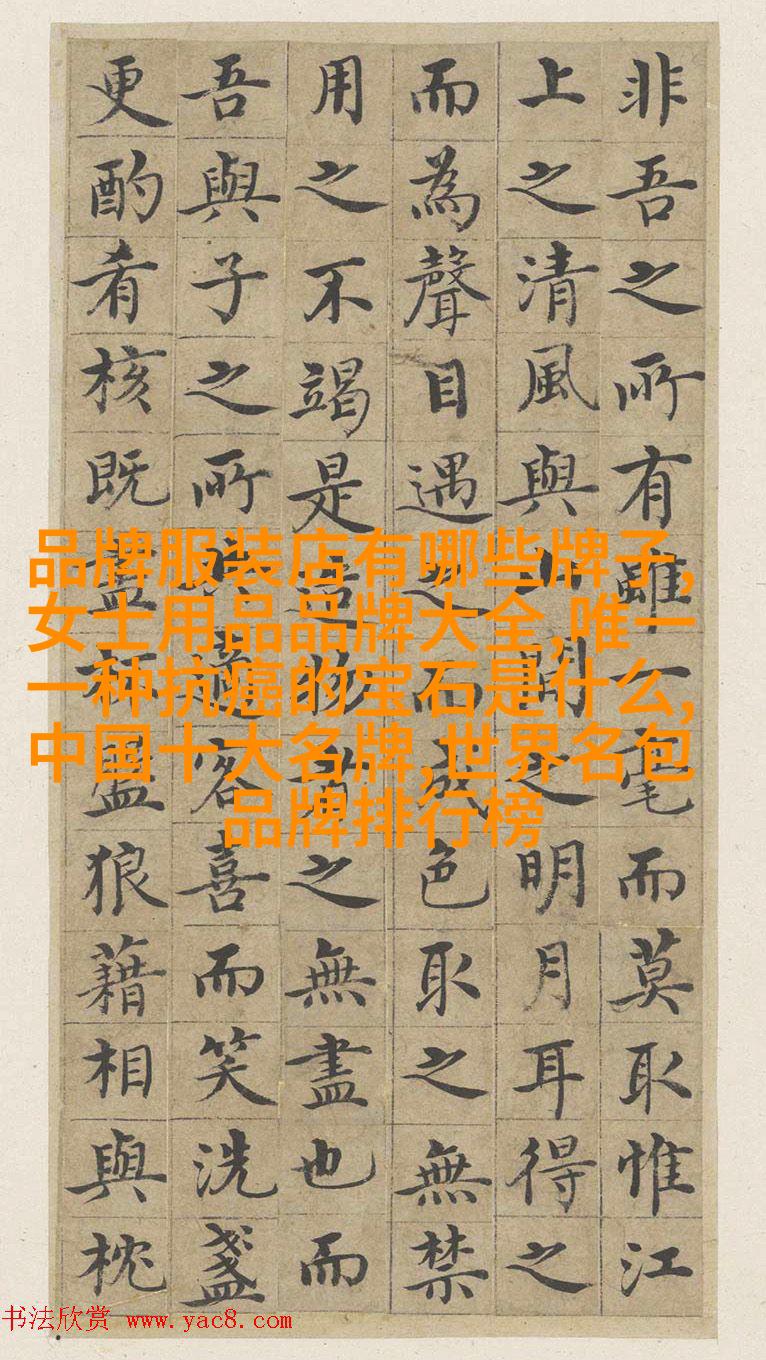 非吾之所有雖一毫而莫取惟江
上之清風與山間之明月耳得之
而為聲目遇之而成色取之無禁
用之不竭是造物者之無盡也而
吾與子之所共適客喜而笑洗盞
更酌肴核既盡杯盤狼藉相與枕
品牌服装店有哪些牌子,
女士用品品牌大全,唯一
一种抗癌的宝石是什么,
中国十大名牌,世界名包
品牌排行榜
书法欣赏 www.yac8.com